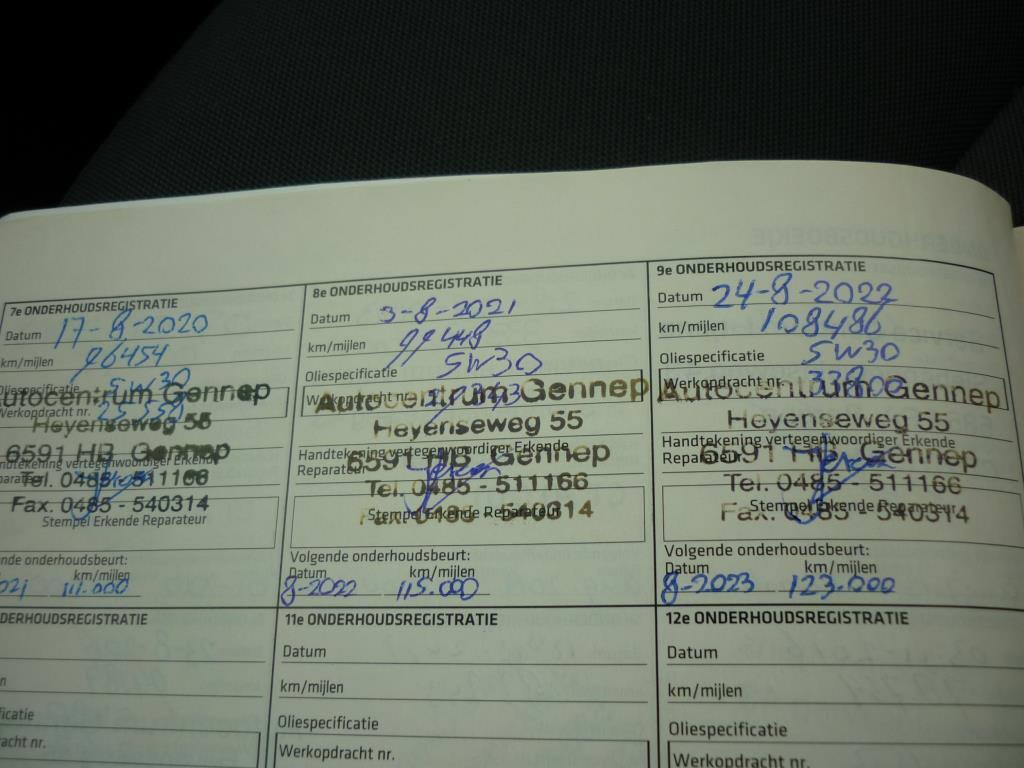 7e ONDERHOUDSREGISTRATIE
Datum 17-8-2020
km/mijlen 96454
Oliespecificatie 5W30
Autocentrum Gennep
Werkopdracht nr.
Heyenseweg 55
6591 HB Gennep
Tel. 0485 - 511166
Fax. 0485 - 540314
Stempel Erkende Reparateur
onderhoudsbeurt:
km/mijlen
111.000
8e ONDERHOUDSREGISTRATIE
Datum 3-8-2021
km/mijlen 99448
Oliespecificatie 5W30
Autocentrum Gennep
Werkopdracht nr.
Heyenseweg 55
Handtekening vertegenwoordiger Erkende
Reparateur
6591 HB Gennep
Tel. 0485 - 511166
Fax. 0485 - 540314
Stempel Erkende Reparateur
Volgende onderhoudsbeurt:
Datum km/mijlen
8-2022 115.000
9e ONDERHOUDSREGISTRATIE
Datum 24-8-2022
km/mijlen 108486
Oliespecificatie 5W30
Autocentrum Gennep
Werkopdracht nr.
Heyenseweg 55
Handtekening vertegenwoordiger Erkende
Reparateur
6591 HB Gennep
Tel. 0485 - 511166
Fax. 0485 - 540314
Stempel Erkende Reparateur
Volgende onderhoudsbeurt:
Datum km/mijlen
8-2023 123.000
11e ONDERHOUDSREGISTRATIE
Datum
km/mijlen
Oliespecificatie
Werkopdracht nr.
12e ONDERHOUDSREGISTRATIE
Datum
km/mijlen
Oliespecificatie
Werkopdracht nr.